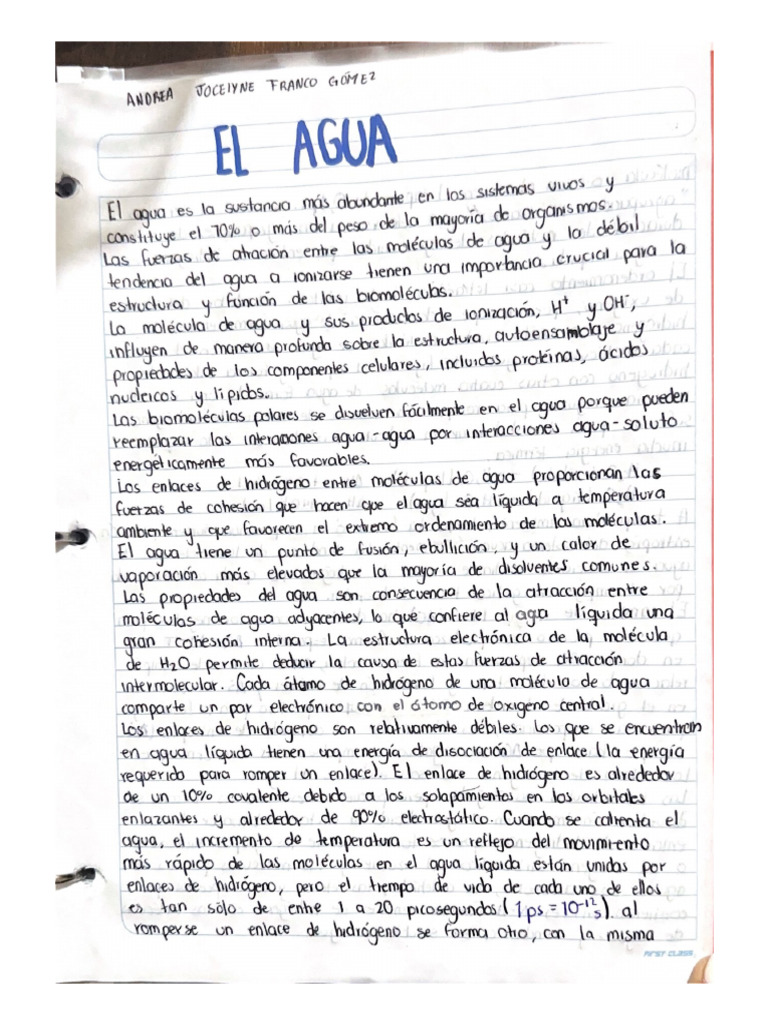 ANDREA JOCELYNE FRANCO GOMEZ
EL AGUA
El agua es la sustancia más abundante en los sistemas vivos y
constituye el 70% o más del peso de la mayoría de organismos.
Las fuerzas de atración entre las moléculas de agua y la débil
tendencia del agua a ionizarse tienen una importancia crucial para la
estructura y función de las biomoléculas.
La molécula de agua y sus productos de ionización, H⁺ y OH⁻,
influyen de manera profunda sobre la estructura, autoensamblaje y
propiedades de los componentes celulares, incluidos proteínas, ácidos
nucleicos y lípidos.
Las biomoléculas polares se disuelven fácilmente en el agua porque pueden
reemplazar las interacciones agua-agua por interacciones agua-soluto
energéticamente más favorables.
Los enlaces de hidrógeno entre moléculas de agua proporcionan las
fuerzas de cohesión que hacen que el agua sea líquida a temperatura
ambiente y que favorecen el extremo ordenamiento de las moléculas.
El agua tiene un punto de fusión, ebullición, y un calor de
vaporación más elevados que la mayoría de disolventes comunes.
Las propiedades del agua son consecuencia de la atracción entre
moléculas de agua adyacentes, lo que confiere al agua líquida una
gran cohesión interna. La estructura electrónica de la molécula
de H₂O permite deducir la causa de estas fuerzas de atracción
intermolecular. Cada átomo de hidrógeno de una molécula de agua
comparte un par electrónico con el átomo de oxigeno central.
Los enlaces de hidrógeno son relativamente débiles. Los que se encuentran
en agua líquida tienen una energía de disociación de enlace (la energía
requerida para romper un enlace). El enlace de hidrógeno es alrededor
de un 10% covalente debido a los solapamientos en los orbitales
enlazantes y alrededor de 90% electrostático. Cuando se calienta el
agua, el incremento de temperatura es un reflejo del movimiento
más rápido de las moléculas en el agua líquida están unidas por
enlaces de hidrógeno, pero el tiempo de vida de cada uno de ellos
es tan sólo de entre 1 a 20 picosegundos (1 ps = 10⁻¹² s). al
romperse un enlace de hidrógeno se forma otro, con la misma
FIRST CLASS